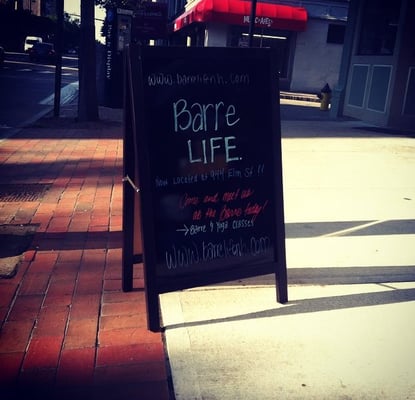 www.barrelifenh.com
Barre
LIFE.
Now located at 944 Elm St !!
Come and meet us
at the Barre today!
→ Barre & Yoga classes
www.barrelifenh.com